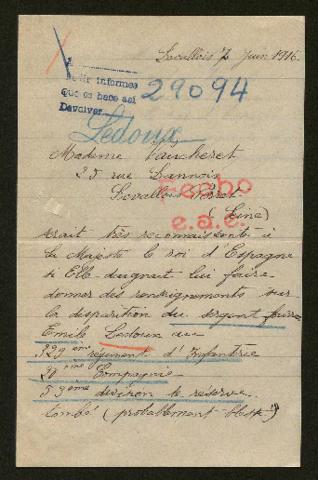 Levallois 7 juin 1916
informes
que se hace así
Devolver
29094
Ledoux
Madame Vaucheret
25 rue Lannois
Levallois Perret
(Seine)
hecho
e.a.e.
serait très reconnaissante à
Sa Majesté le roi d'Espagne
si Elle daignait lui faire
donner des renseignements sur
la disparition du sergent
Emile Ledoux du
329 eme régiment d'Infanterie
20 eme Compagnie
53 eme division de réserve
tombé (probablement